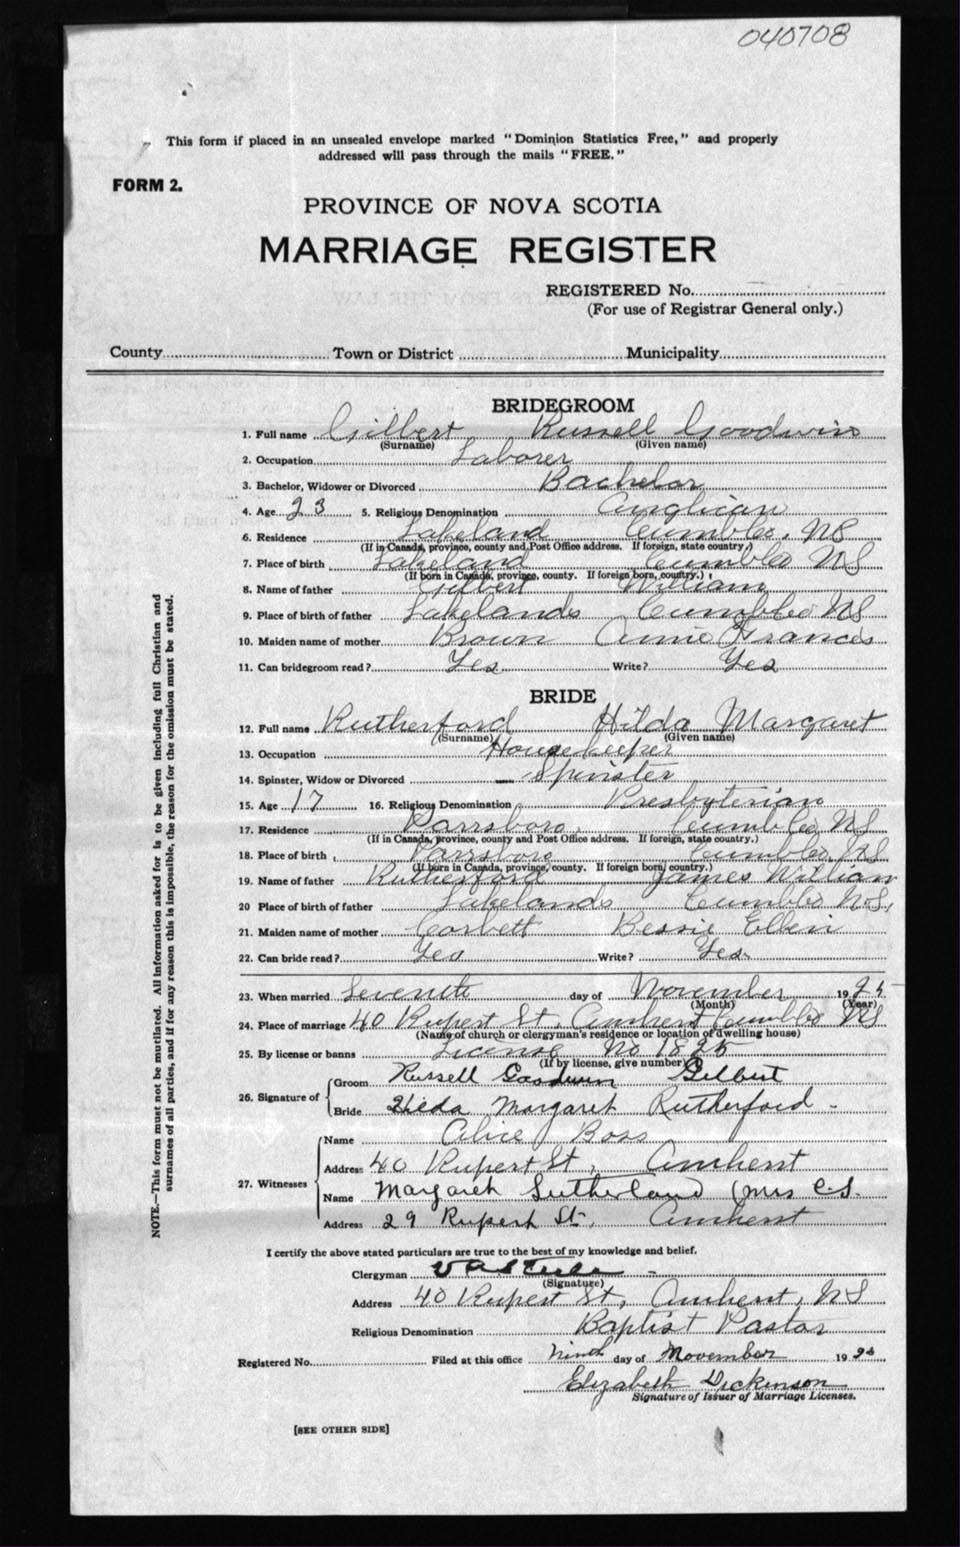 040708
This form if placed in an unsealed envelope marked "Dominion Statistics Free," and properly
addressed will pass through the mails "FREE."
FORM 2.
PROVINCE OF NOVA SCOTIA
MARRIAGE REGISTER
REGISTERED No.
(For use of Registrar General only.)
County Town or District Municipality
BRIDEGROOM
1. Full name Gilbert Russell Goodwin
(Surname) (Given name)
2. Occupation Laborer
3. Bachelor, Widower or Divorced Bachelor
4. Age 23 5. Religious Denomination Anglican
6. Residence Lakeland Cumbld, NS
(If in Canada, province, county and Post Office address. If foreign, state country.)
7. Place of birth Lakeland Cumbld NS
(If born in Canada, province, county. If foreign born, country.)
8. Name of father Gilbert William
9. Place of birth of father Lakelands Cumbld NS
10. Maiden name of mother Brown Annie Francis
11. Can bridegroom read? Yes Write? Yes
BRIDE
12. Full name Rutherford Hilda Margaret
(Surname) (Given name)
13. Occupation Housekeeper
14. Spinster, Widow or Divorced Spinster
15. Age 17 16. Religious Denomination Presbyterian
17. Residence Parrsboro, Cumbld NS
(If in Canada, province, county and Post Office address. If foreign, state country.)
18. Place of birth Parrsboro Cumbld NS
(If born in Canada, province, county. If foreign born, country.)
19. Name of father Rutherford James William
20 Place of birth of father Lakelands Cumbld N.S.
21. Maiden name of mother Corbett Bessie Ellen
22. Can bride read? Yes Write? Yes.
23. When married Seventh day of November 1925
(Month) (Year)
24. Place of marriage 40 Rupert St, Amherst Cumbld NS
(Name of church or clergyman's residence or location of dwelling house)
25. By license or banns License No 1825
(If by license, give number)
26. Signature of Groom Russell Goodwin Gilbert
Bride Hilda Margaret Rutherford
27. Witnesses Name Alice Boss
Address 40 Rupert St, Amherst
Name Margaret Sutherland (Mrs C.S.
Address 29 Rupert St, Amherst
I certify the above stated particulars are true to the best of my knowledge and belief.
Clergyman
(Signature)
Address 40 Rupert St, Amherst, NS
Religious Denomination Baptist Pastor
Registered No. Filed at this office ninth day of November 1925
Elizabeth Dickinson
Signature of Issuer of Marriage Licenses.
[SEE OTHER SIDE]
NOTE.—This form must not be mutilated. All information asked for is to be given including full Christian and
surnames of all parties, and if for any reason this is impossible, the reason for the omission must be stated.